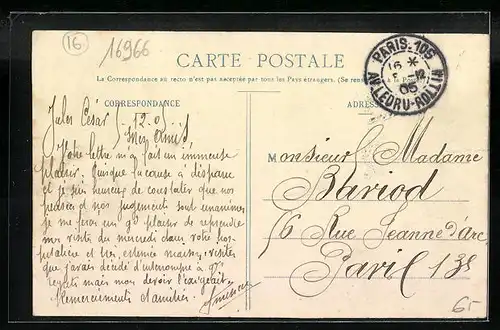 16
16966
CARTE POSTALE
La Correspondance au recto n'est pas acceptée par tous les Pays étrangers. (Se rens
à la Poste
CORRESPONDANCE
ADRES
PARIS-105
16 *
12
05
AV. LEDRU-ROLLIN
Jules César 5-12-0
Mes Amis
Votre lettre m'a fait un immense
plaisir. Puisque la cause a disparu
et je suis heureux de constater que nos
et nos jugements sont unanimes,
je me ferai un gd plaisir de reprendre
mes visites du mercredi dans votre hos-
pitalière et très estimée maison, visites
que j'avais décidé d'interrompre à gds
regrets mais mon devoir l'exigeait.
Remerciements & amitiés.
Monsieur Madame
Bariod
56 Rue Jeanne d'Arc
Paris 13e
65